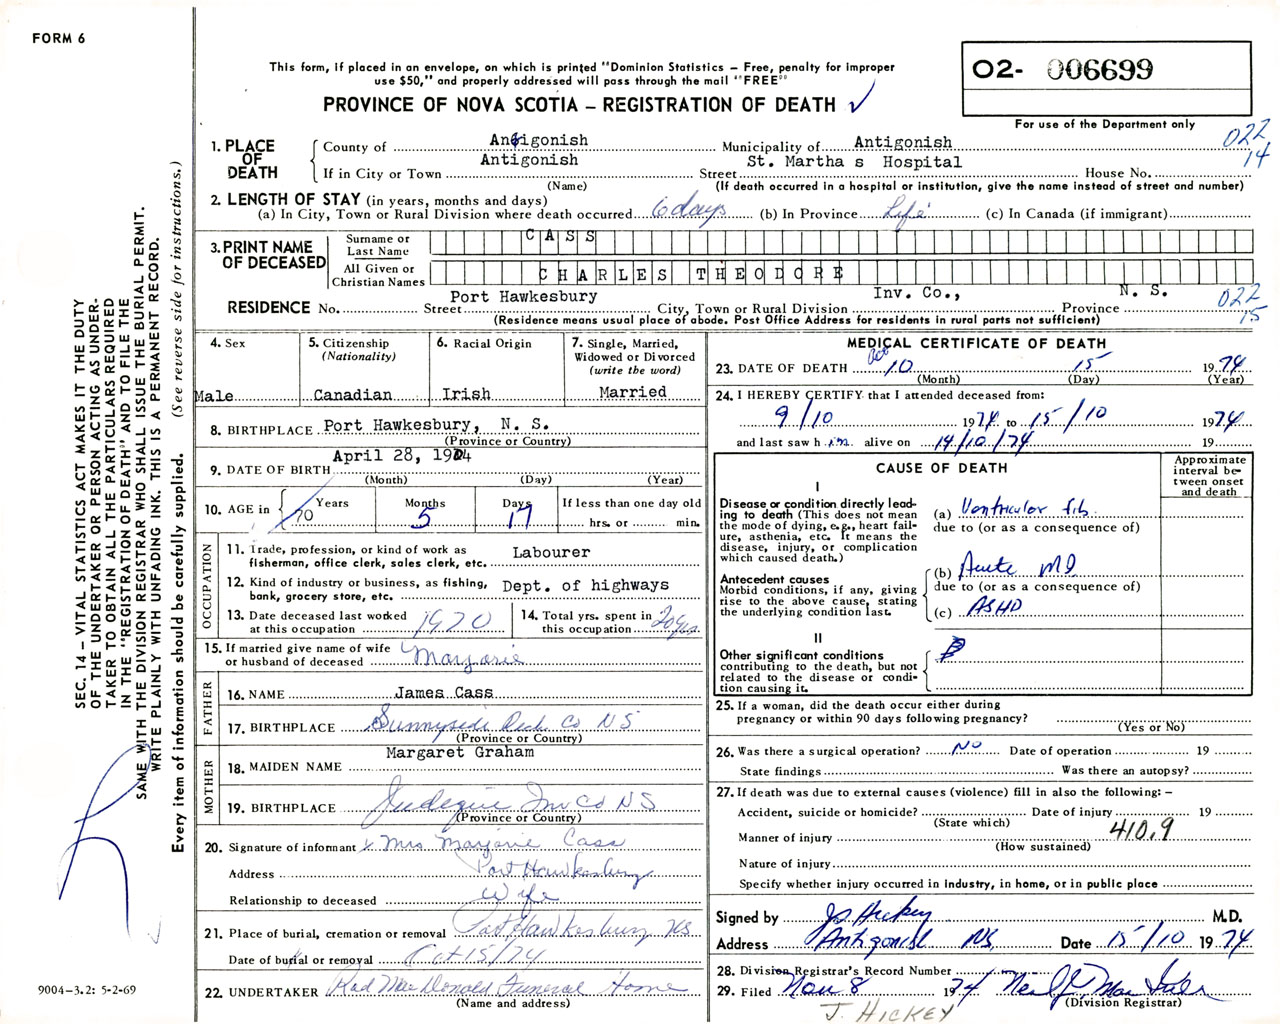 FORM 6
This form, if placed in an envelope, on which is printed "Dominion Statistics – Free, penalty for improper
use $50," and properly addressed will pass through the mail "FREE"
PROVINCE OF NOVA SCOTIA – REGISTRATION OF DEATH ✓
O2- 006699
For use of the Department only
022
14
1. PLACE OF DEATH
County of Antigonish Municipality of Antigonish
If in City or Town Antigonish Street St. Martha s Hospital House No.
(Name) (If death occurred in a hospital or institution, give the name instead of street and number)
2. LENGTH OF STAY (in years, months and days)
(a) In City, Town or Rural Division where death occurred 6 days (b) In Province Life (c) In Canada (if immigrant)
3. PRINT NAME OF DECEASED
Surname or Last Name CASS
All Given or Christian Names CHARLES THEODORE
RESIDENCE No. Street Port Hawkesbury City, Town or Rural Division Inv. Co., Province N. S.
(Residence means usual place of abode. Post Office Address for residents in rural parts not sufficient)
022
15
4. Sex
Male
5. Citizenship
(Nationality)
Canadian
6. Racial Origin
Irish
7. Single, Married,
Widowed or Divorced
(write the word)
Married
8. BIRTHPLACE Port Hawkesbury, N. S.
(Province or Country)
9. DATE OF BIRTH April 28, 1904
(Month) (Day) (Year)
10. AGE in
Years 70
Months 5
Days 17
If less than one day old
hrs. or min.
OCCUPATION
11. Trade, profession, or kind of work as
fisherman, office clerk, sales clerk, etc. Labourer
12. Kind of industry or business, as fishing,
bank, grocery store, etc. Dept. of highways
13. Date deceased last worked
at this occupation 1970
14. Total yrs. spent in
this occupation 20 yrs.
15. If married give name of wife
or husband of deceased Marjorie
FATHER
16. NAME James Cass
17. BIRTHPLACE Sunnyside Rich Co NS
(Province or Country)
MOTHER
18. MAIDEN NAME Margaret Graham
19. BIRTHPLACE Judique Inv Co NS
(Province or Country)
20. Signature of informant x Mrs Marjorie Cass
Address Port Hawkesbury
Relationship to deceased Wife
21. Place of burial, cremation or removal Port Hawkesbury NS
Date of burial or removal Oct 15/74
22. UNDERTAKER Rod MacDonald Funeral Home
(Name and address)
MEDICAL CERTIFICATE OF DEATH
23. DATE OF DEATH Oct 10 15 1974
(Month) (Day) (Year)
24. I HEREBY CERTIFY that I attended deceased from:
9/10 1974 to 15/10 1974
and last saw h im alive on 14/10/74 19
CAUSE OF DEATH
Approximate
interval be-
tween onset
and death
I
Disease or condition directly lead-
ing to death (This does not mean
the mode of dying, e.g., heart fail-
ure, asthenia, etc. It means the
disease, injury, or complication
which caused death.)
(a) Ventricular fib.
due to (or as a consequence of)
Antecedent causes
Morbid conditions, if any, giving
rise to the above cause, stating
the underlying condition last.
(b) Acute MI
due to (or as a consequence of)
(c) ASHD
II
Other significant conditions
contributing to the death, but not
related to the disease or condi-
tion causing it.
25. If a woman, did the death occur either during
pregnancy or within 90 days following pregnancy?
(Yes or No)
26. Was there a surgical operation? No Date of operation 19
State findings Was there an autopsy?
27. If death was due to external causes (violence) fill in also the following: –
Accident, suicide or homicide? Date of injury 19
(State which)
Manner of injury 410.9
(How sustained)
Nature of injury
Specify whether injury occurred in industry, in home, or in public place
Signed by J Hickey M.D.
Address Antigonish NS Date 15/10 1974
28. Division Registrar's Record Number
29. Filed Nov 8 1974
(Division Registrar)
J. HICKEY
SEC. 14 – VITAL STATISTICS ACT MAKES IT THE DUTY
OF THE UNDERTAKER OR PERSON ACTING AS UNDER-
TAKER TO OBTAIN ALL THE PARTICULARS REQUIRED
IN THE "REGISTRATION OF DEATH" AND TO FILE THE
SAME WITH THE DIVISION REGISTRAR WHO SHALL ISSUE THE BURIAL PERMIT.
WRITE PLAINLY WITH UNFADING INK. THIS IS A PERMANENT RECORD.
Every item of information should be carefully supplied. (See reverse side for instructions.)
9004-3.2: 5-2-69